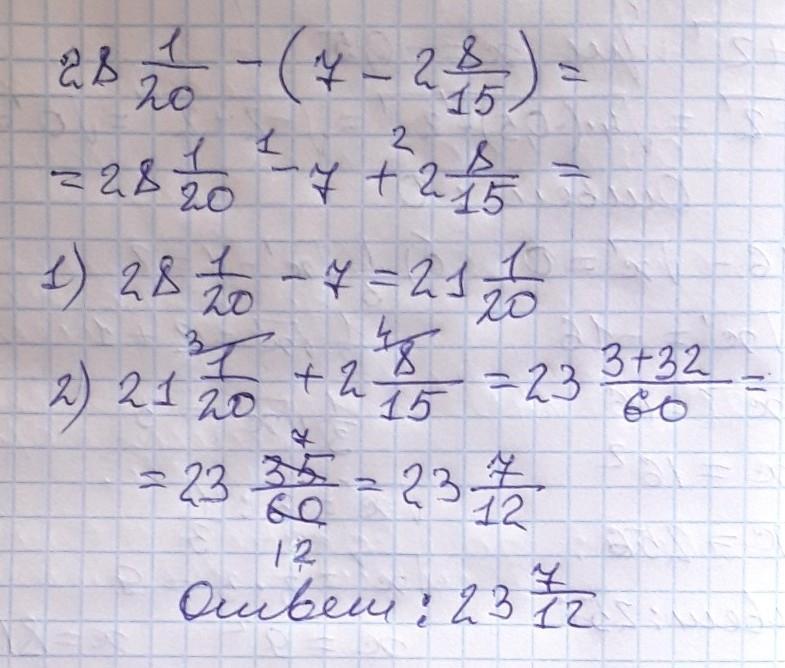 28 1/20 - (7 - 2 8/15) =
= 28 1/20 -¹ 7 +² 2 8/15 =
1) 28 1/20 - 7 = 21 1/20
2) 21 ³⁄1/20 + 2 ⁴⁄8/15 = 23 3+32/60 =
= 23 35/60 (7/12) = 23 7/12
Ответ: 23 7/12